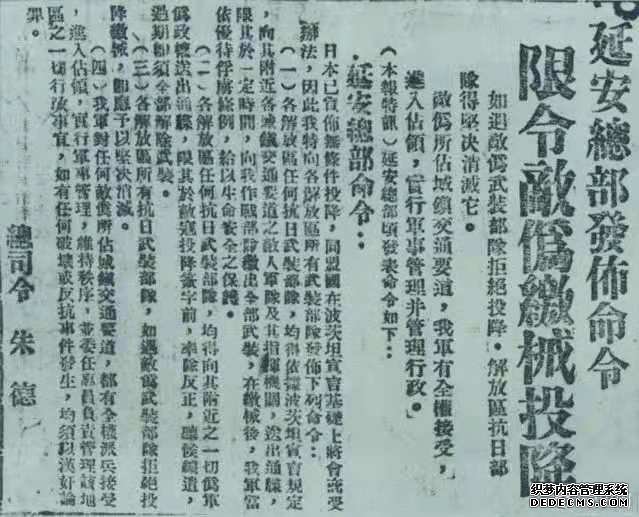 延安總部發佈命令
限令敵僞繳械投降
如遇敵僞武裝部隊拒絕投降。解放區抗日部
隊得堅决消滅它。
敵僞所佔城鎮交通要道,我軍有全權接受,
進入佔領,實行軍事管理并管理行政。
(本報特訊)延安總部頃發表命令如下:
延安總部命令:
日本已宣佈無條件投降,同盟國在波茨坦宣言基礎上將會商受降
辦法,因此我特向各解放區所有武裝部隊發佈下列命令:
(一)各解放區任何抗日武裝部隊,均得依據波茨坦宣言規定
,向其附近各城鎮交通要道之敵人軍隊及其指揮機關,送出通牒,
限其於一定時間,向我作戰部隊繳出全部武裝,在繳械後,我軍當
依優待俘虜條例,給以生命安全之保護。
(二)各解放區任何抗日武裝部隊,均得向其附近之一切僞軍
僞政權送出通牒,限其於敵寇投降簽字前,率隊反正,聽候編遣,
過期卽須全部解除武裝。
(三)各解放區所有抗日武裝部隊,如遇敵僞武裝部隊拒絕投
降繳械,卽應予以堅决消滅。
(四)我軍對任何敵僞所佔城鎮交通要道,都有全權派兵接受
,進入佔領,實行軍事管理,維持秩序,並委任專員負責管理該地
區之一切行政事宜,如有任何破壞或反抗事件發生,均須以漢奸論
罪。
總司令 朱德
织梦内容管理系统
DEDECMS.COM